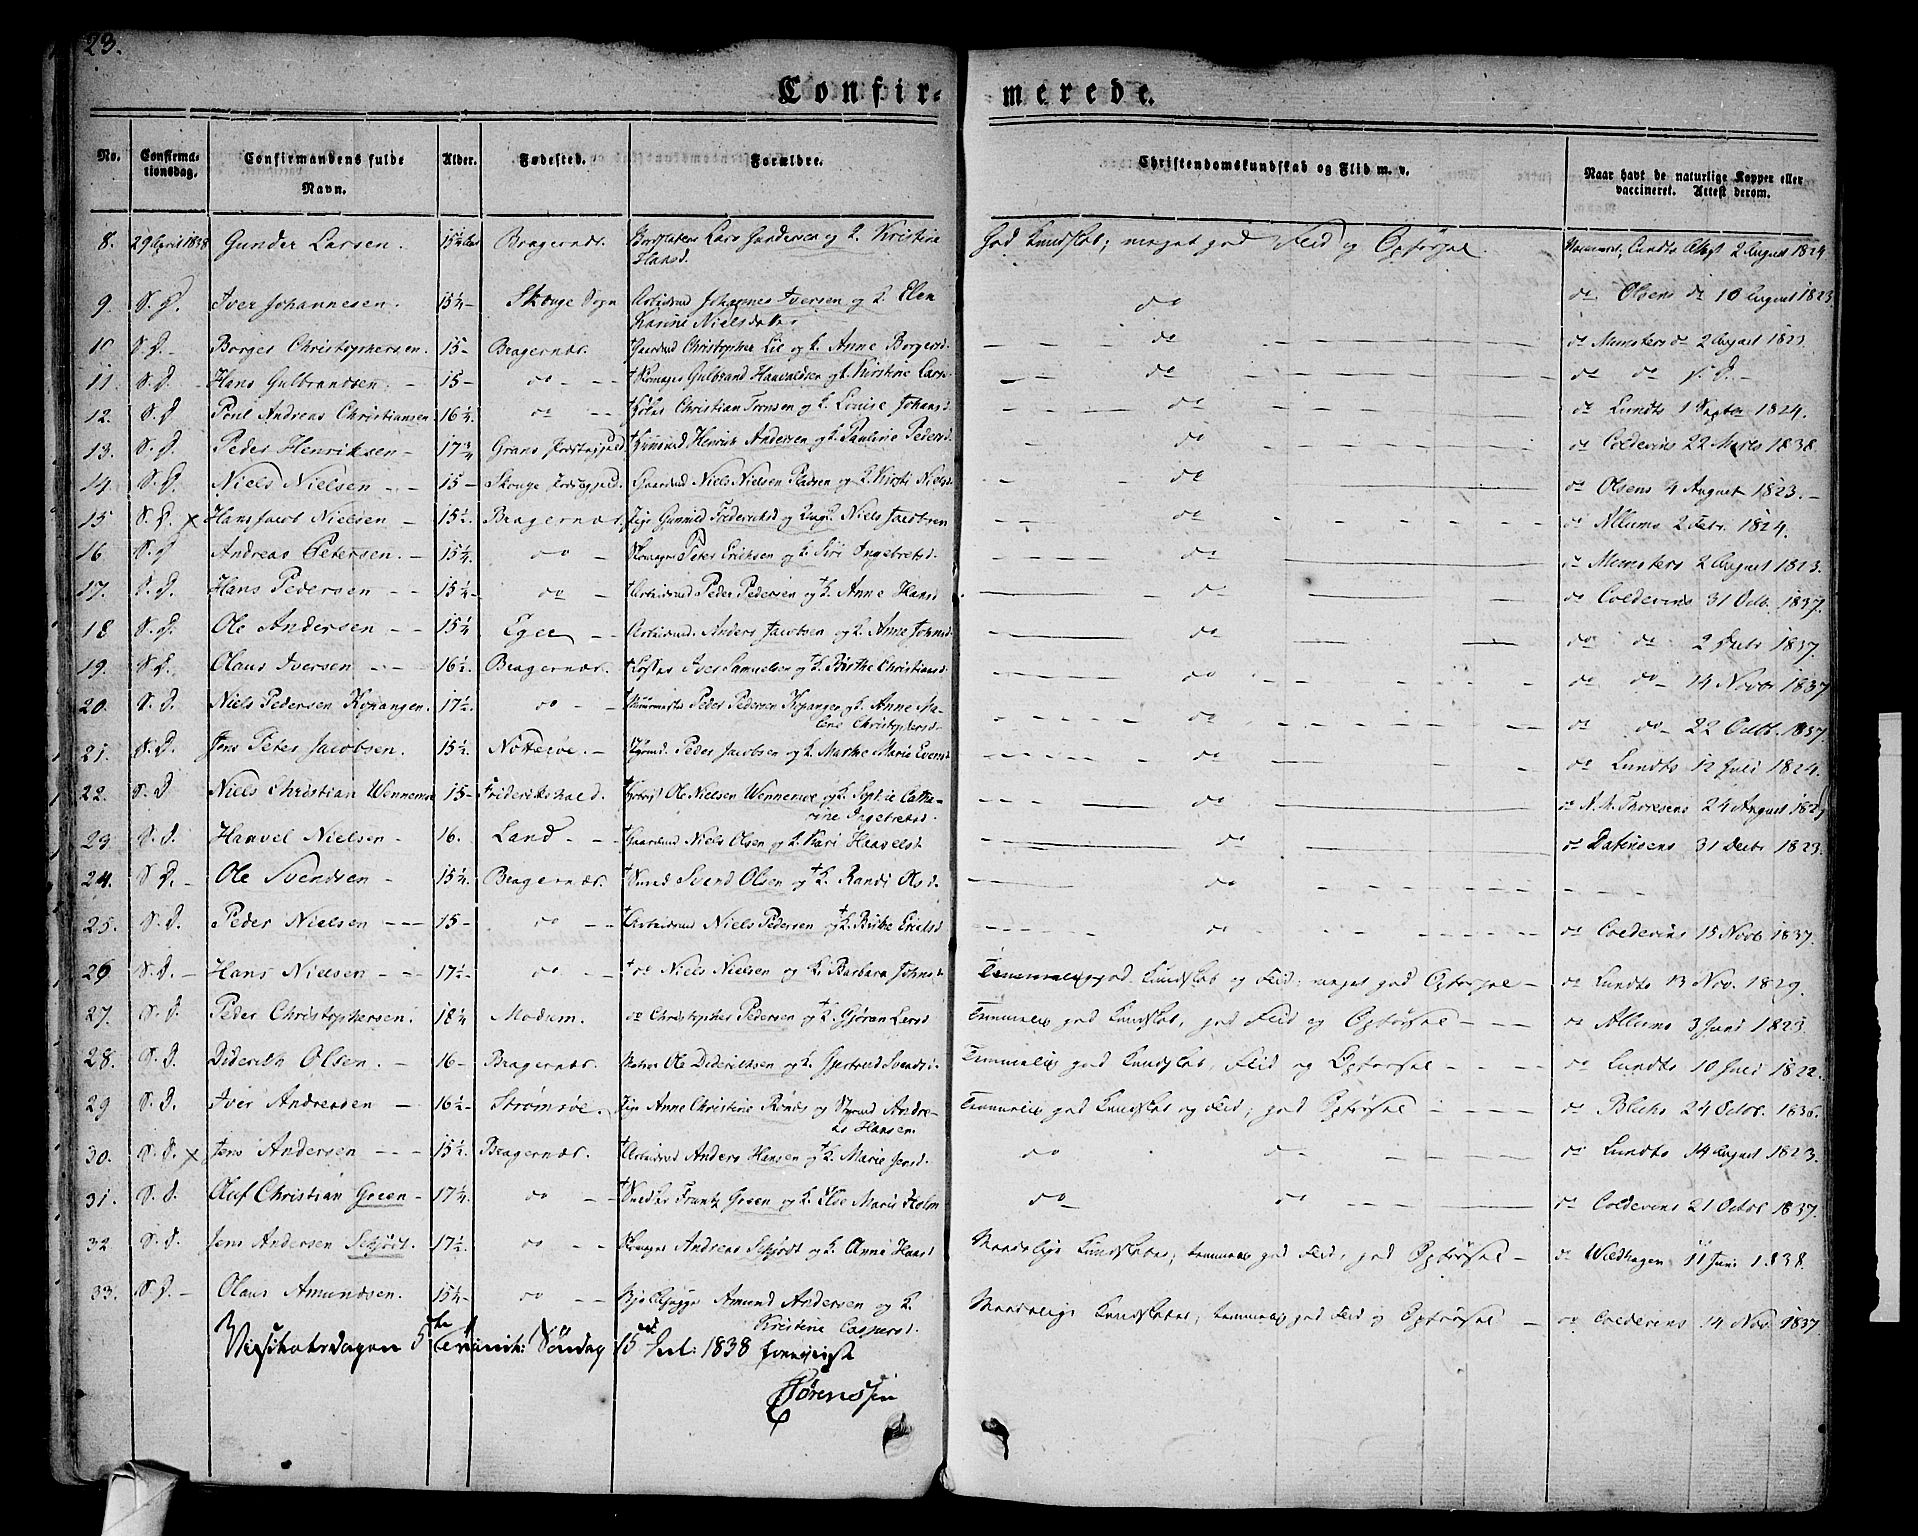 23.
Confir- merede.
No. Confirma-tionsdag. Confirmandens fulde Navn. Alder. Fødested. Forældre. Christendomskundskab og Flid m. v. Naar havt de naturlige Kopper eller vaccineret. Attest derom.
8. 29 April 1838 Gunder Larsen. Bragernæs. Lars Gundersen og K. Kristine Hansd. God Kundskab; meget god Flid og Opførsel. Lundts Attest 2 August 1824
9. S. D. Iver Johannesen. 15¼ Skouge Sogn Arbeidsmd Johannes Iversen og K. Elen Karine Nielsdatter do do Olsens do 10 August 1823
10 S. D. Borger Christophersen. 15 Bragernæs. Gaardmd Christopher Lie og K. Anne Borgersd. do do Monsters do 2 August 1823.
11. S. D. Hans Gulbrandsen. 15 do † Skomager Gulbrand Haavaldsen og K. Kirstine Larsd do do do S. D.
12. S. D. Poul Andreas Christiansen 16¼ do Christian Tronsen og K. Louise Johansd do do Lundts 1 Septbr 1824.
13. S. D. Peder Henriksen 17¾ Grans Præstegjæld Henrik Andersen og K. Pauline Pedersd do do Coldevins 22 Marts 1838.
14. S. D. Niels Nielsen 15 Skouge Præstegjæld. Gaardmd Niels Nielsen Pladsen og K. Kirsti Nielsd. do do Olsens 4 August 1823.
15 S. D. x Hans Jacob Nielsen 15½ Bragernæs. Pige Gunnild Frederiksd og Ungk. Niels Jacobsen do do Allums 2 Febr. 1824.
16. S. D. Andreas Petersen. 15¼ do Skomager Peter Eriksen og K. Siri Ingebretsd. do do Monsters 2 August 1823.
17. S. D. Hans Pedersen 15½ do † Arbeidsmd Peder Pedersen og † K. Anne Hansd do do Coldevins 31 Octb. 1837.
18 S. D. Ole Andersen 15¼ Eger Arbeidsmd. Anders Jacobsen og K. Anne Johnsd. do do do 2 Febr 1837.
19. S. D. Olaus Iversen 16½ Bragernæs. Iver Samuelsen og † K. Birthe Christiansd do do do 14 Novbr 1837
20. S. D. Niels Pedersen Kopangen. 17½ do † Muurmester Peder Pedersen Kopangen og K. Anne Malene Christophersd do do do 22 Octb. 1837.
21. S. D. Jens Peter Jacobsen. 15½ Nøtterøe. Peder Jacobsen og K. Marthe Maria Evensd do do Lundts 12 Juli 1824.
22. S. D. Niels Christian Wennemoe 15 Friderikshald. Ole Nielsen Wennemoe og K. Sophie Catharine Ingebretsd. do do A. M. Thoresens 24 August 182
23. S. D. Hanvel Nielsen 16. Land † Gaardmd Niels Olsen og K. Kari Haavelsd. do do 31 Decbr 1823.
24. S. D. Ole Svendsen 15¼ Bragernæs. Svend Olsen og † K. Randi Olsd. do
25. S. D. Peder Nielsen 15 do † Arbeidsmd Niels Pedersen † K. Birthe Eriksd do do Coldevins 15 Novb. 1837.
26 S. D. Hans Nielsen 17½ do † do Niels Nielsen og K. Barbara Johnsd Temmelig god Kundskab og Flid; meget god Opførsel do Lundts 13 Nov. 1829.
27. S. D. Peder Christophersen. 18¼ Modum. do Christopher Pedersen og † K. Gjøran Larsd Temmelig god Kundskab, god Flid og Opførsel do Allums 3 Juni 1823.
28. S. D. Diderik Olsen. 16 Bragernæs. Ole Dideriksen og K. Gjertrud Svendsd. Temmelig god Kundskab, Flid og Opførsel do Lundts 10 Juli 1822.
29 S. D. Iver Andreasen 16½ Strømsøe. Pige Anne Christine Rønds og Styrmd Andreas Hansen. Temmelig god Kundskab og Flid; god Opførsel do Blichs 24 Octbr. 1836.
30. S. D. x Jens Andersen 15½ Bragernæs. † Arbeidsmd Anders Hansen og † K. Marie Jensd. do do do Lundts 14 August 1823.
31. S. D. Oluf Christian Green 17¼ do † Snedker Frantz Green og K. Else Marie Holm do do do Coldevins 21 Octbr 1837.
32 S. D. Jens Andersen Schjødt. 17½ do Skomager Andreas Schjødt og K. Anne Hansd Maadelige Kundskaber; temmelig god Flid, god Opførsel do Wildhagen 11 Juni 1838.
33. S. D. Olaus Amundsen. 15¼ do Amund Andersen og K. Kristine Caspersd. Maadelige Kundskaber; temmelig god Flid og Opførsel do Coldevins 14 Nov. 1837.
5te Søndag 15 Jul: 1838
Sørenssen